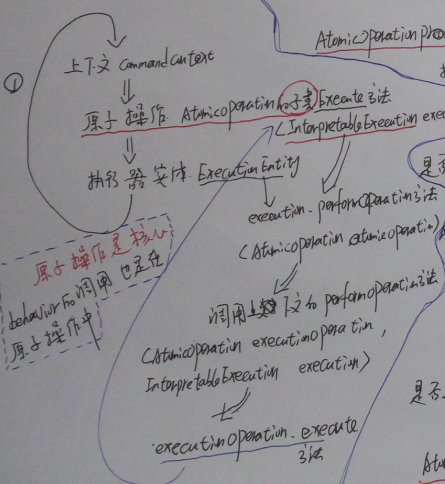 ①
上下文 CommandContext
原子操作 AtomicOperation 的子类 Execute 方法
(InterpretableExecution exec
执行器实体 ExecutionEntity
execution.performOperation方法
(AtomicOperation atomicOperation)
原子操作是核心
behavior的调用也是在
原子操作中
调用上下文的 performOperation方法
(AtomicOperation executionOperation,
InterpretableExecution execution)
executionOperation.execute
方法
AtomicOperation
是否
是否
Atom